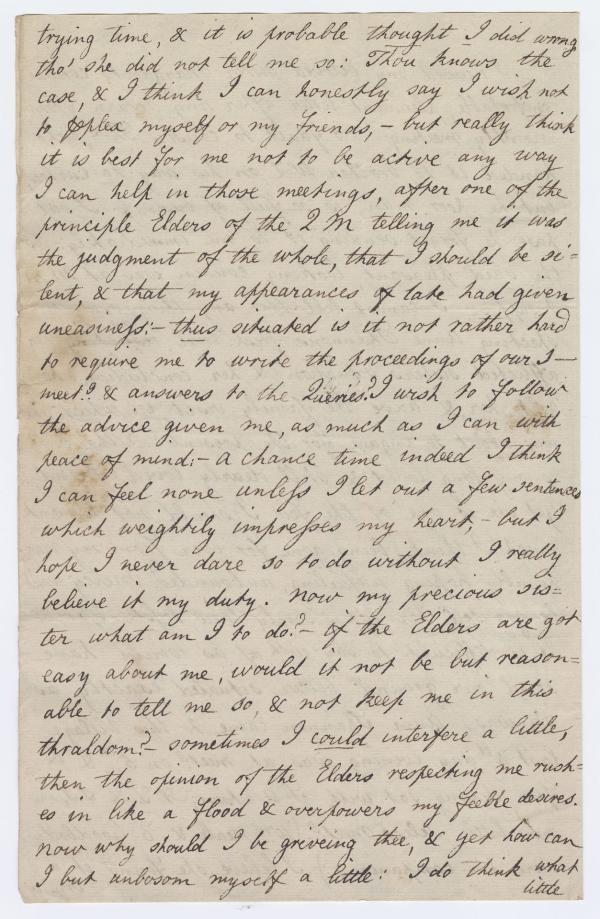 trying time, & it is probable thought I did wrong
tho' she did not tell me so: Thou knows the
case, & I think I can honestly say I wish not
to pplex myself or my friends, - but really think
it is best for me not to be active any way
I can help in those meetings, after one of the
principle Elders of the Q M telling me it was
the judgment of the whole, that I should be si=
lent, & that my appearances of late had given
uneasiness:- thus situated is it not rather hard
to require me to write the proceedings of our s—
meetg & answers to the Queries? I wish to follow
the advice given me, as much as I can with
peace of mind:- a chance time indeed I think
I can feel none unless I let out a few sentences
which weightily impresses my heart, - but I
hope I never dare so to do without I really
believe it my duty. now my precious sis=
ter what am I to do?- if the Elders are got
easy about me, would it not be but reason=
able to tell me so, & not keep me in this
thraldom?- sometimes I could interfere a little,
then the opinion of the Elders respecting me rush=
es in like a flood & overpowers my feeble desires.
now why should I be griveing thee, & yet how can
I but unbosom myself a little: I do think what
little